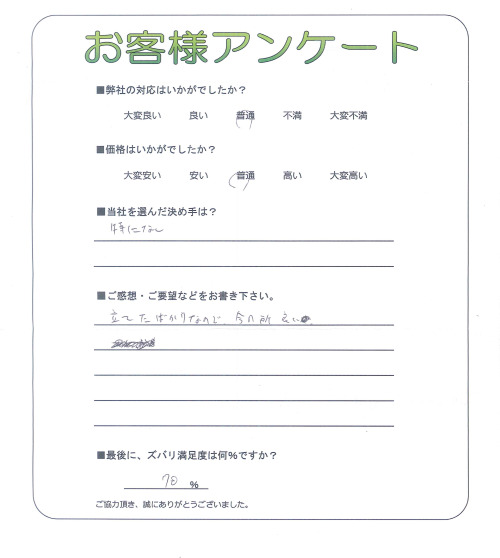 お客様アンケート
■弊社の対応はいかがでしたか？
大変良い 良い 普通 不満 大変不満
■価格はいかがでしたか？
大変安い 安い 普通 高い 大変高い
■当社を選んだ決め手は？
特になし
■ご感想・ご要望などをお書き下さい。
立てたばかりなので、今の所良い。
■最後に、ズバリ満足度は何%ですか？
70 %
ご協力頂き、誠にありがとうございました。